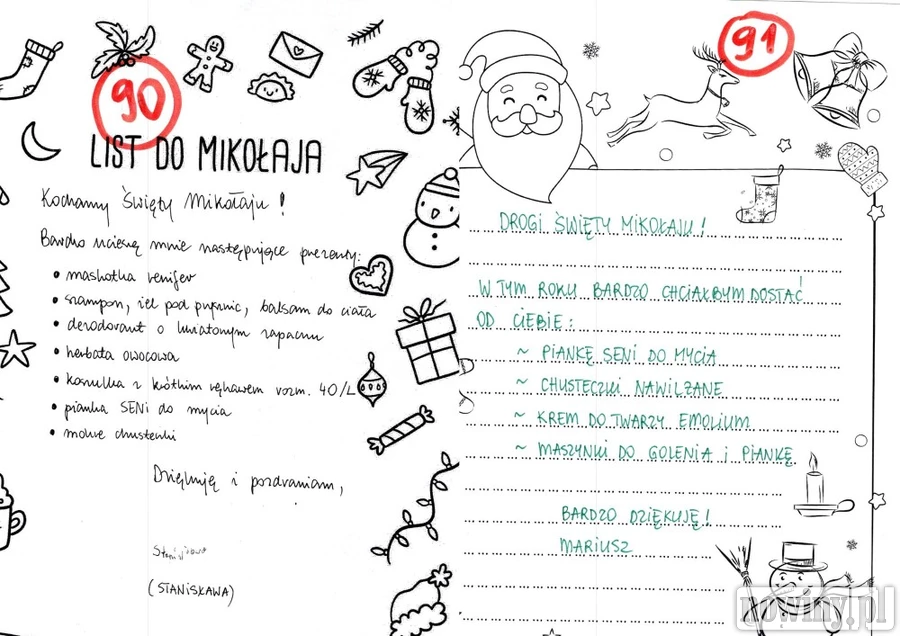 90
LIST DO MIKOŁAJA
Kochany Święty Mikołaju!
Bardzo ucieszą mnie następujące prezenty:
• maskotka renifer
• szampon, żel pod prysznic, balsam do ciała
• dezodorant o kwiatowym zapachu
• herbata owocowa
• koszulka z krótkim rękawem rozm. 40/L
• pianka SENI do mycia
• mokre chusteczki
Dziękuję i pozdrawiam,
Stanisława
(STANISŁAWA)
91
DROGI ŚWIĘTY MIKOŁAJU!
W TYM ROKU BARDZO CHCIAŁBYM DOSTAĆ
OD CIEBIE:
~ PIANKĘ SENI DO MYCIA
~ CHUSTECZKI NAWILŻANE
~ KREM DO TWARZY EMOLIUM
~ MASZYNKI DO GOLENIA I PIANKĘ
BARDZO DZIĘKUJĘ!
MARIUSZ
nowiny.pl